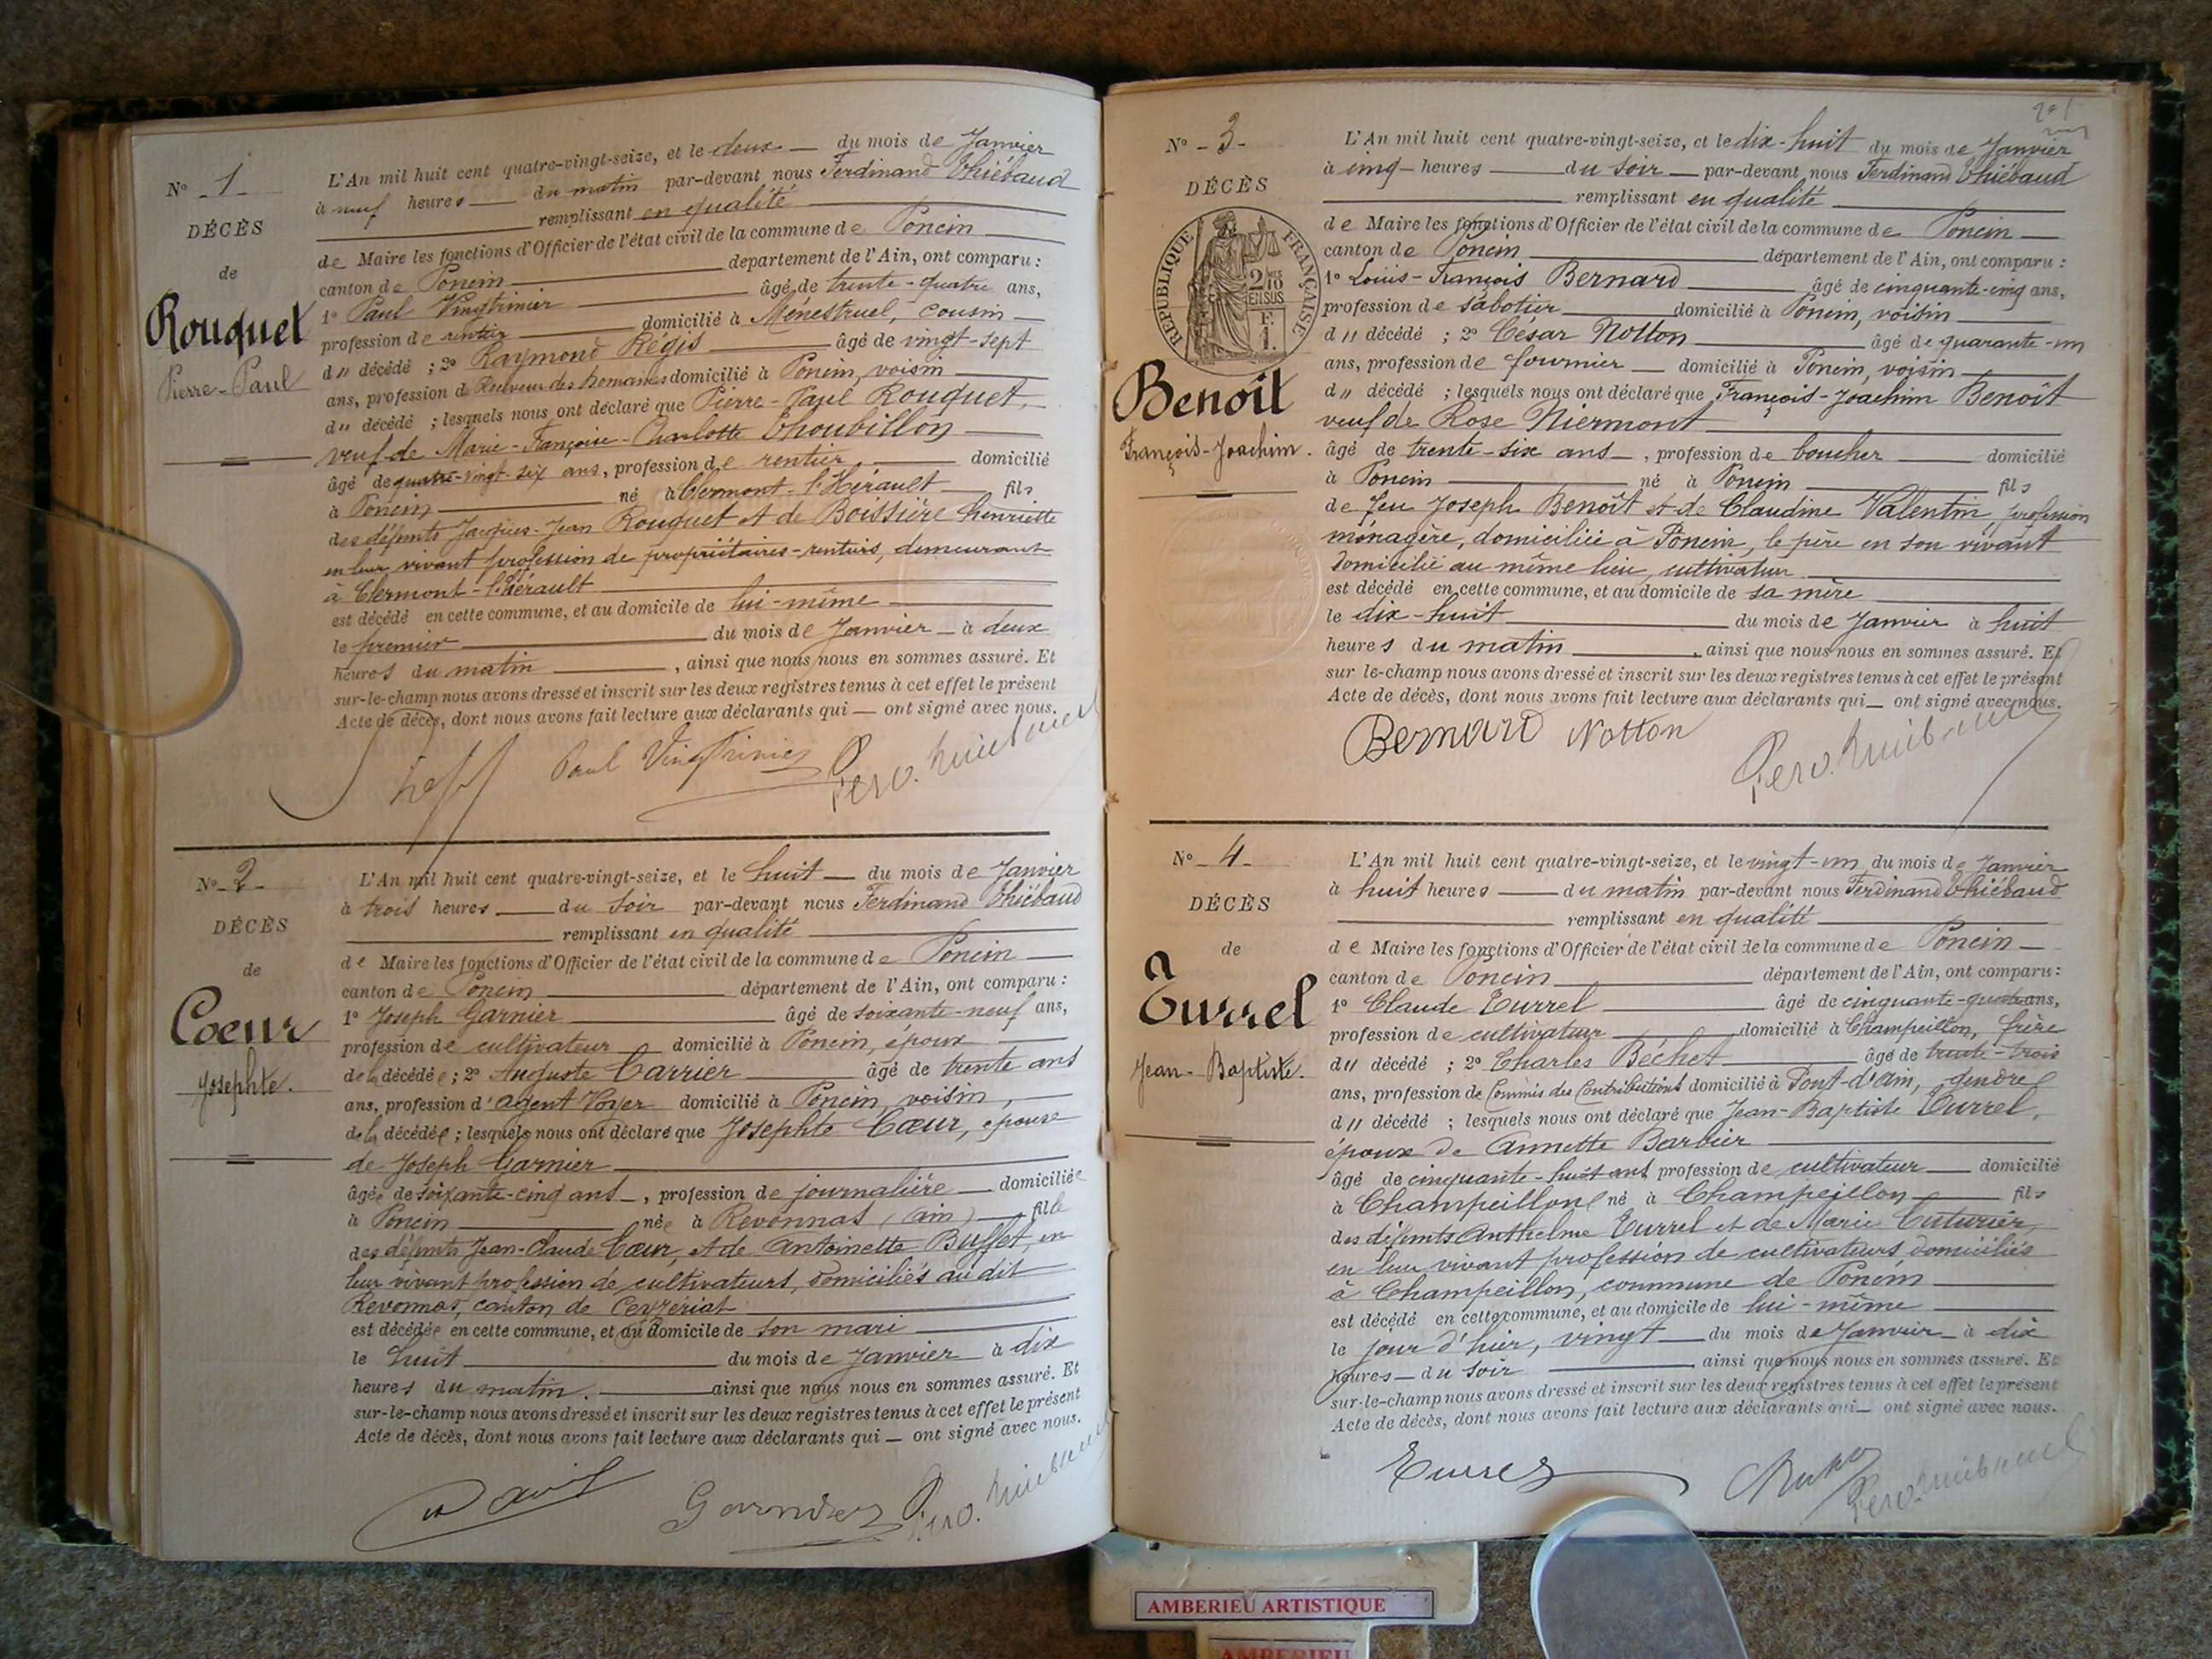 N° 1
DÉCÈS
de
Rouquet
Pierre-Paul
L'An mil huit cent quatre-vingt-seize, et le deux du mois de Janvier
à neuf heures du matin par-devant nous Ferdinand Thiébaud
remplissant en qualité
de Maire les fonctions d'Officier de l'état civil de la commune de Poncin
canton de Poncin département de l'Ain, ont comparu :
1° Paul Vingtrinier âgé de trente-quatre ans,
profession de rentier domicilié à Ménestruel, cousin
d" décédé ; 2° Raymond Régis âgé de vingt-sept
ans, profession de Receveur des domaines domicilié à Poncin, voisin
d" décédé ; lesquels nous ont déclaré que Pierre-Paul Rouquet,
veuf de Marie-Françoise-Charlotte Choubillon
âgé de quatre-vingt-six ans, profession de rentier domicilié
à Poncin né à Clermont-l'Hérault fils
des défunts Jacques-Jean Rouquet et de Boissière Henriette
en leur vivant profession de propriétaires-rentiers, demeurant
à Clermont-l'Hérault
est décédé en cette commune, et au domicile de lui-même
le premier du mois de Janvier à deux
heures du matin, ainsi que nous nous en sommes assuré. Et
sur-le-champ nous avons dressé et inscrit sur les deux registres tenus à cet effet le présent
Acte de décès, dont nous avons fait lecture aux déclarants qui ont signé avec nous.
Paul Vingtrinier
N° 2
DÉCÈS
de
Coeur
Josephte.
L'An mil huit cent quatre-vingt-seize, et le huit du mois de Janvier
à trois heures du soir par-devant nous Ferdinand Thiébaud
remplissant en qualité
de Maire les fonctions d'Officier de l'état civil de la commune de Poncin
canton de Poncin département de l'Ain, ont comparu :
1° Joseph Garnier âgé de soixante-neuf ans,
profession de cultivateur domicilié à Poncin, époux
de la décédée ; 2° Auguste Carrier âgé de trente ans
ans, profession d'agent Voyer domicilié à Poncin, voisin,
de la décédée ; lesquels nous ont déclaré que Josephte Cœur, épouse
de Joseph Garnier
âgée de soixante-cinq ans, profession de journalière domiciliée
à Poncin née à Revonnas (Ain) fille
des défunts Jean-Claude Cœur, et de Antoinette Buffet, en
leur vivant profession de cultivateurs, domiciliés au dit
Revonnas, canton de Ceyzériat
est décédée en cette commune, et au domicile de son mari
le huit du mois de Janvier à dix
heures du matin. ainsi que nous nous en sommes assuré. Et
sur-le-champ nous avons dressé et inscrit sur les deux registres tenus à cet effet le présent
Acte de décès, dont nous avons fait lecture aux déclarants qui ont signé avec nous.
Garnier
N° 3
DÉCÈS
RÉPUBLIQUE FRANÇAISE
2/10 EN SUS
Benoît
François-Joachim.
L'An mil huit cent quatre-vingt-seize, et le dix-huit du mois de Janvier
à cinq heures du soir par-devant nous Ferdinand Thiébaud
remplissant en qualité
de Maire les fonctions d'Officier de l'état civil de la commune de Poncin
canton de Poncin département de l'Ain, ont comparu :
1° Louis-François Bernard âgé de cinquante-cinq ans,
profession de sabotier domicilié à Poncin, voisin
d" décédé ; 2° César Notton âgé de quarante-un
ans, profession de fournier domicilié à Poncin, voisin
d" décédé ; lesquels nous ont déclaré que François-Joachim Benoît
veuf de Rose Niermont
âgé de trente-six ans, profession de boucher domicilié
à Poncin né à Poncin fils
de feu Joseph Benoît et de Claudine Valentin, profession
ménagère, domiciliée à Poncin, le père en son vivant
domicilié au même lieu, cultivateur
est décédé en cette commune, et au domicile de sa mère
le dix-huit du mois de Janvier à huit
heures du matin, ainsi que nous nous en sommes assuré. Et
sur le-champ nous avons dressé et inscrit sur les deux registres tenus à cet effet le présent
Acte de décès, dont nous avons fait lecture aux déclarants qui ont signé avec nous.
Bernard Notton
N° 4
DÉCÈS
de
Turrel
Jean-Baptiste.
L'An mil huit cent quatre-vingt-seize, et le vingt-un du mois de Janvier
à huit heures du matin par-devant nous Ferdinand Thiébaud
remplissant en qualité
de Maire les fonctions d'Officier de l'état civil de la commune de Poncin
canton de Poncin département de l'Ain, ont comparu :
1° Claude Turrel âgé de cinquante-quatre ans,
profession de cultivateur domicilié à Champeillon, frère
d" décédé ; 2° Charles Béchet âgé de trente-trois
ans, profession de Commis des Contributions domicilié à Pont-d'Ain, gendre
d" décédé ; lesquels nous ont déclaré que Jean-Baptiste Turrel,
époux de Annette Barbier
âgé de cinquante-huit ans profession de cultivateur domicilié
à Champeillon né à Champeillon fils
des défunts Anthelme Turrel et de Marie Cuturier,
en leur vivant profession de cultivateurs domiciliés
à Champeillon, commune de Poncin
est décédé en cette commune, et au domicile de lui-même
le jour d'hier, vingt du mois de Janvier à dix
heures du soir ainsi que nous nous en sommes assuré. Et
sur-le-champ nous avons dressé et inscrit sur les deux registres tenus à cet effet le présent
Acte de décès, dont nous avons fait lecture aux déclarants qui ont signé avec nous.
Turrel
AMBERIEU ARTISTIQUE
AMBERIEU